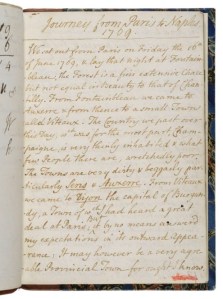 Journey from Paris to Naples
1769.
We set out from Paris on Friday the 16th
of June 1769. & lay that night at Fontain-
bleau; the Forest is a fine extensive Chace
but not equal in Beauty to that of Chan-
tilly. From Fontainbleau we came to
Auxerre, & from thence to a small Town
called Viteaux. The Country we past over
this Day, as it was for the most part Cham-
paigne, is very thinly inhabited, & what
few People there are, wretchedly poor.
The Towns are very dirty & beggarly par-
ticularly Sens & Auxerre. From Viteaux
we came to Dijon the capital of Burgun-
dy, a Town of wch I had heard a great
deal at Paris, but by no means answerd
my expectations in its outward appea-
rance; It may however be a very agree-
ble Provincial Town for ought I know.